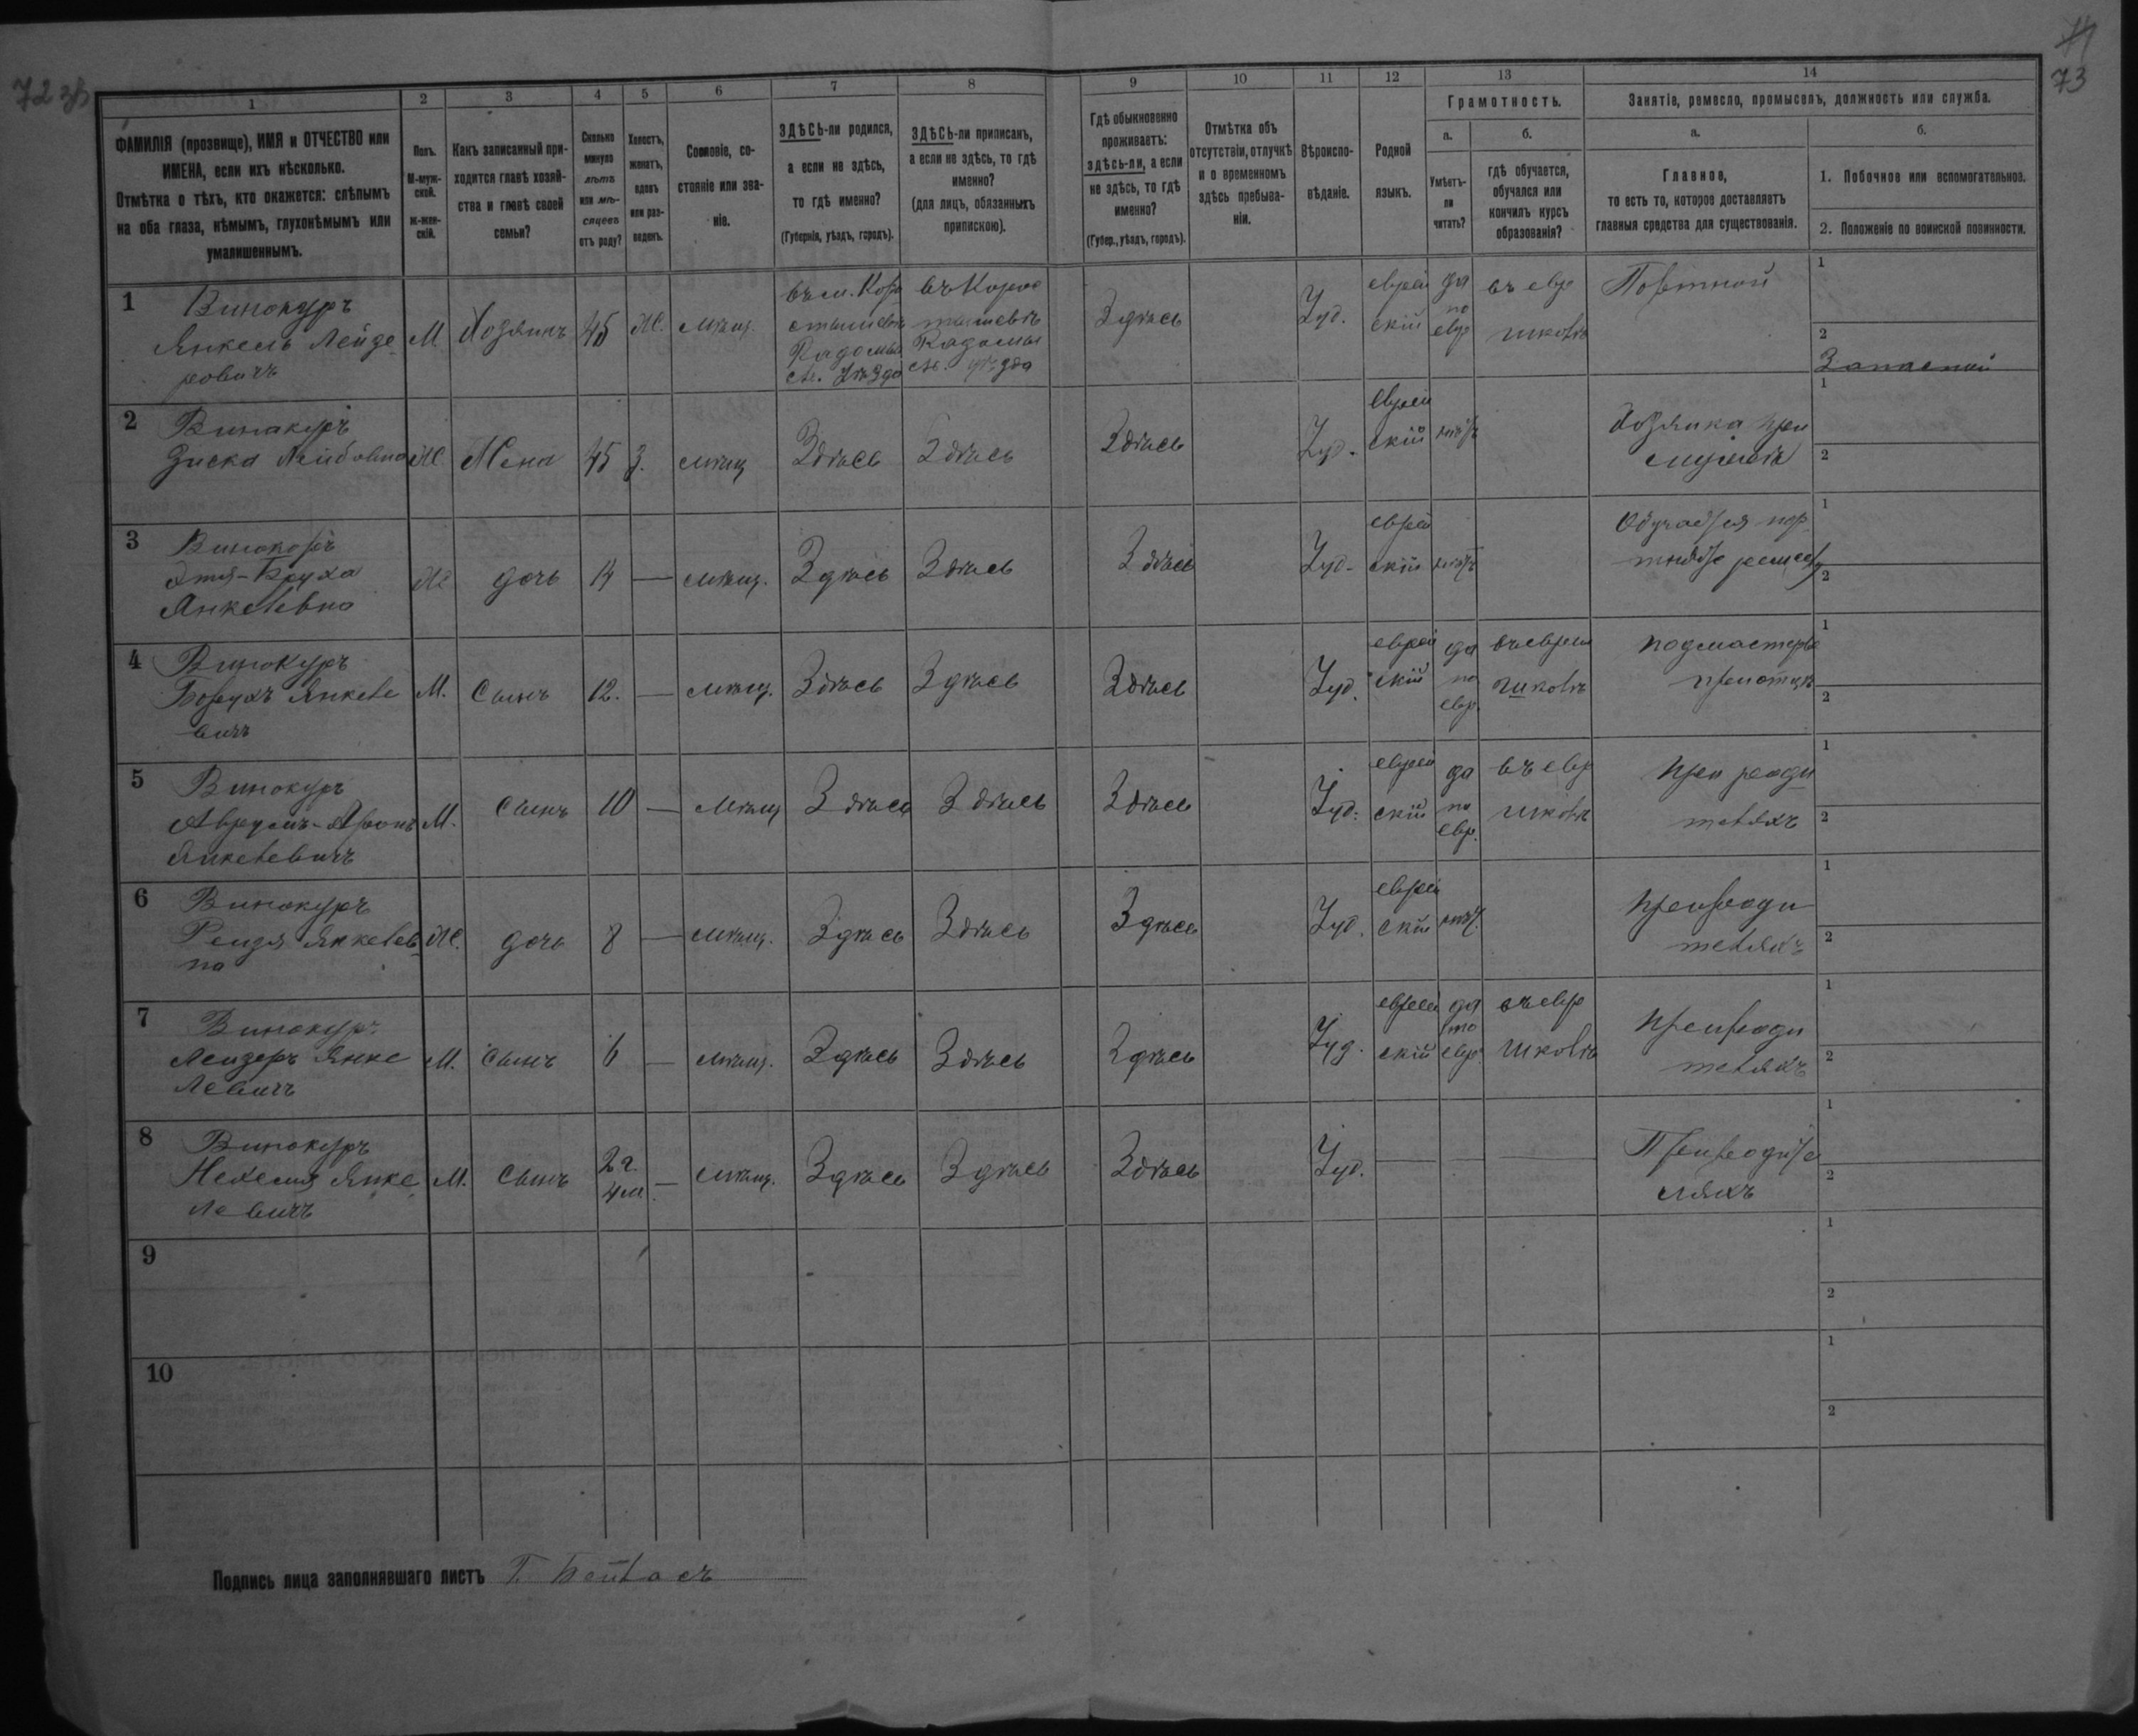 72 зв
73
1
2
3
4
5
6
7
8
9
10
11
12
13
14
ФАМИЛІЯ (прозвище), ИМЯ и ОТЧЕСТВО или
ИМЕНА, если ихъ нѣсколько.
Отмѣтка о тѣхъ, кто окажется: слѣпымъ
на оба глаза, нѣмымъ, глухонѣмымъ или
умалишеннымъ.
Полъ.
М-муж-
ской.
ж-жен-
скій.
Какъ записанный при-
ходится главѣ хозяй-
ства и главѣ своей
семьи?
Сколько
минуло
лѣтъ
или мѣ-
сяцевъ
отъ роду?
Холостъ,
женатъ,
вдовъ
или раз-
веденъ.
Сословіе, со-
стояніе или зва-
ніе.
ЗДѢСЬ-ли родился,
а если не здѣсь,
то гдѣ именно?
(Губернія, уѣздъ, городъ).
ЗДѢСЬ-ли приписанъ,
а если не здѣсь, то гдѣ
именно?
(для лицъ, обязанныхъ
припискою).
Гдѣ обыкновенно
проживаетъ:
здѣсь-ли, а если
не здѣсь, то гдѣ
именно?
(Губер., уѣздъ, городъ).
Отмѣтка объ
отсутствіи, отлучкѣ
и о временномъ
здѣсь пребыва-
ніи.
Вѣроиспо-
вѣданіе.
Родной
языкъ.
Грамотность.
а.
Умѣетъ-
ли
читать?
б.
гдѣ обучается,
обучался или
кончилъ курсъ
образованія?
Занятіе, ремесло, промыселъ, должность или служба.
а.
Главное,
то есть то, которое доставляетъ
главныя средства для существованія.
б.
1. Побочное или вспомогательное.
2. Положеніе по воинской повинности.
1
Винокуръ
Янкель Лейзе-
ровичъ
М
Хозяинъ
45
Ж.
мѣщ.
въ м. Коро
стышевѣ
Радомыс
ск. Уѣзда
въ Коро
стышевѣ
Радомыс
ск. уѣзда
Здѣсь
Іуд.
еврей
скій
да
по
евр
въ евр
школѣ
Портной
1
2
Запасной
2
Винокуръ
Зиска Лейбовна
Ж
Жена
45
З.
мѣщ
Здѣсь
Здѣсь
Здѣсь
Іуд.
еврей
скій
нѣтъ
Хозяйка при
мужѣ
1
2
3
Винокуръ
Этя-Бруха
Янкелевна
Ж
дочь
14
—
мѣщ.
Здѣсь
Здѣсь
Здѣсь
Іуд.
еврей
скій
нѣтъ
Обучается пор
1
2
4
Винокуръ
Борухъ Янкеле
вичъ
М.
Сынъ
12.
—
мѣщ.
Здѣсь
Здѣсь
Здѣсь
Іуд.
еврей
скій
да
по
евр.
въ еврей
школѣ
подмастерье
при отцѣ
1
2
5
Винокуръ
Аврумъ-Аронъ
Янкелевичъ
М.
Сынъ
10
—
мѣщ
Здѣсь
Здѣсь
Здѣсь
Іуд.
еврей
скій
да
по
евр.
въ евр
школѣ
при роди
теляхъ
1
2
6
Винокуръ
Рейзя Янкелев-
на
Ж.
дочь
8
—
мѣщ.
Здѣсь
Здѣсь
Здѣсь
Іуд.
еврей
скій
нѣтъ
при роди
теляхъ
1
2
7
Винокуръ
Лейзеръ Янке
левичъ
М.
Сынъ
6
—
мѣщ.
Здѣсь
Здѣсь
Здѣсь
Іуд.
еврей
скій
да
по
евр
въ евр
школѣ
при роди
теляхъ
1
2
8
Винокуръ
Нехемія Янке
левичъ
М.
Сынъ
2 г.
4 м.
—
мѣщ.
Здѣсь
Здѣсь
Здѣсь
Іуд.
—
—
—
При родите
ляхъ
1
2
9
1
2
10
1
2
Подпись лица заполнявшаго листъ